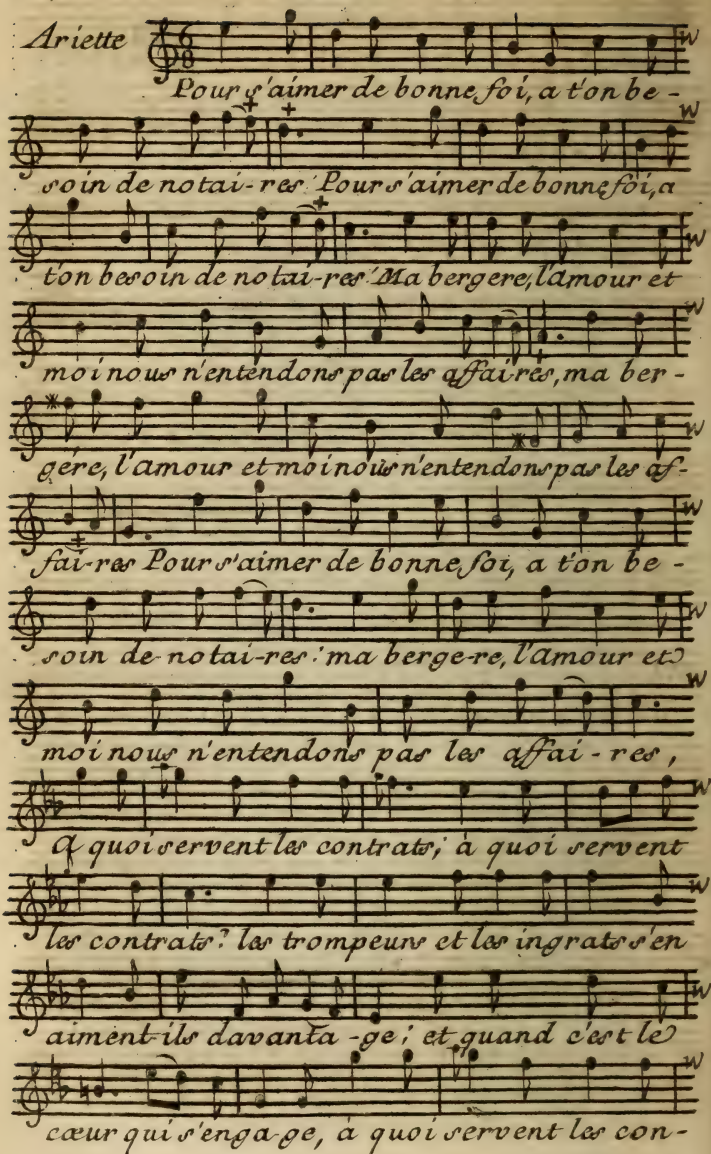 Ariette
Pour s'aimer de bonne foi, a t'on be-
soin de notai-res Pour s'aimer de bonne foi, a
t'on besoin de notai-res Ma bergere, l'amour et
moi nous n'entendons pas les affaires, ma ber-
gére, l'amour et moi nous n'entendons pas les af-
fai-res Pour s'aimer de bonne foi, a t'on be-
soin de notai-res: ma berge-re, l'amour et
moi nous n'entendons pas les affai-res,
A quoi servent les contrats; à quoi servent
les contrats? les trompeurs et les ingrats s'en
aiment-ils davanta-ge; et quand c'est le
cœur qui s'engage, à quoi servent les con-